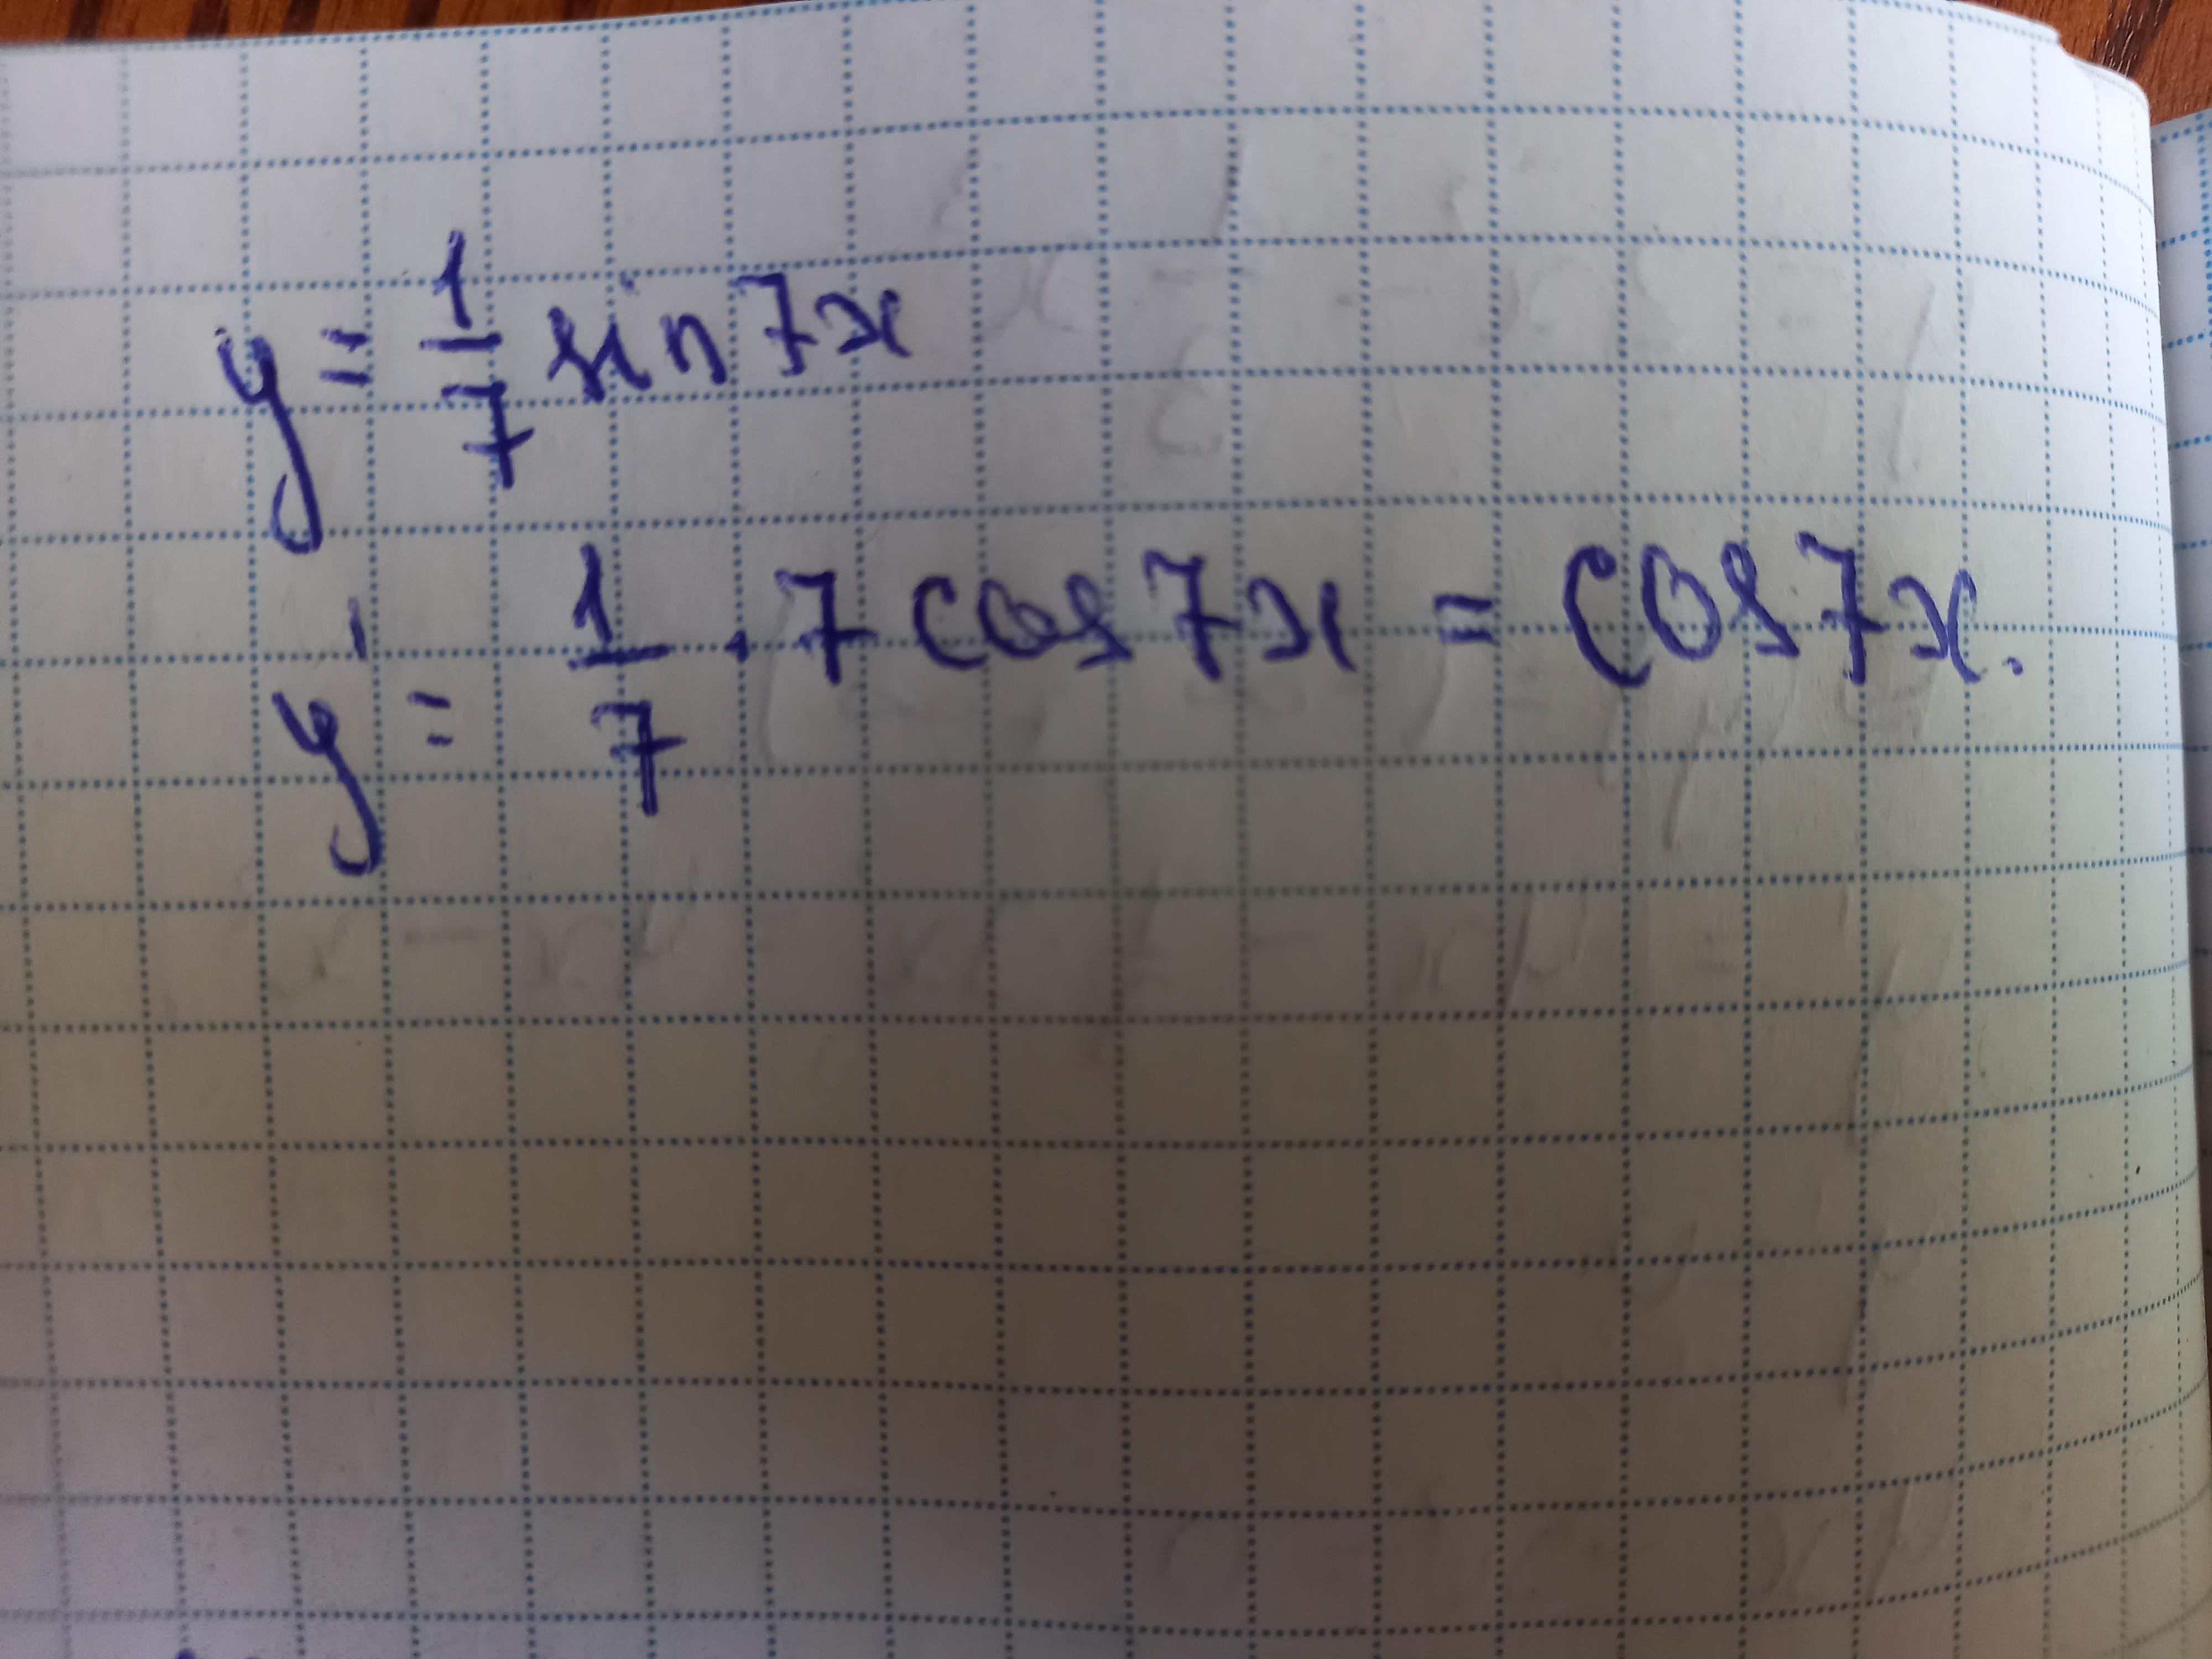 y = 1/7 sin 7x
y' = 1/7 · 7 cos 7x = cos 7x.